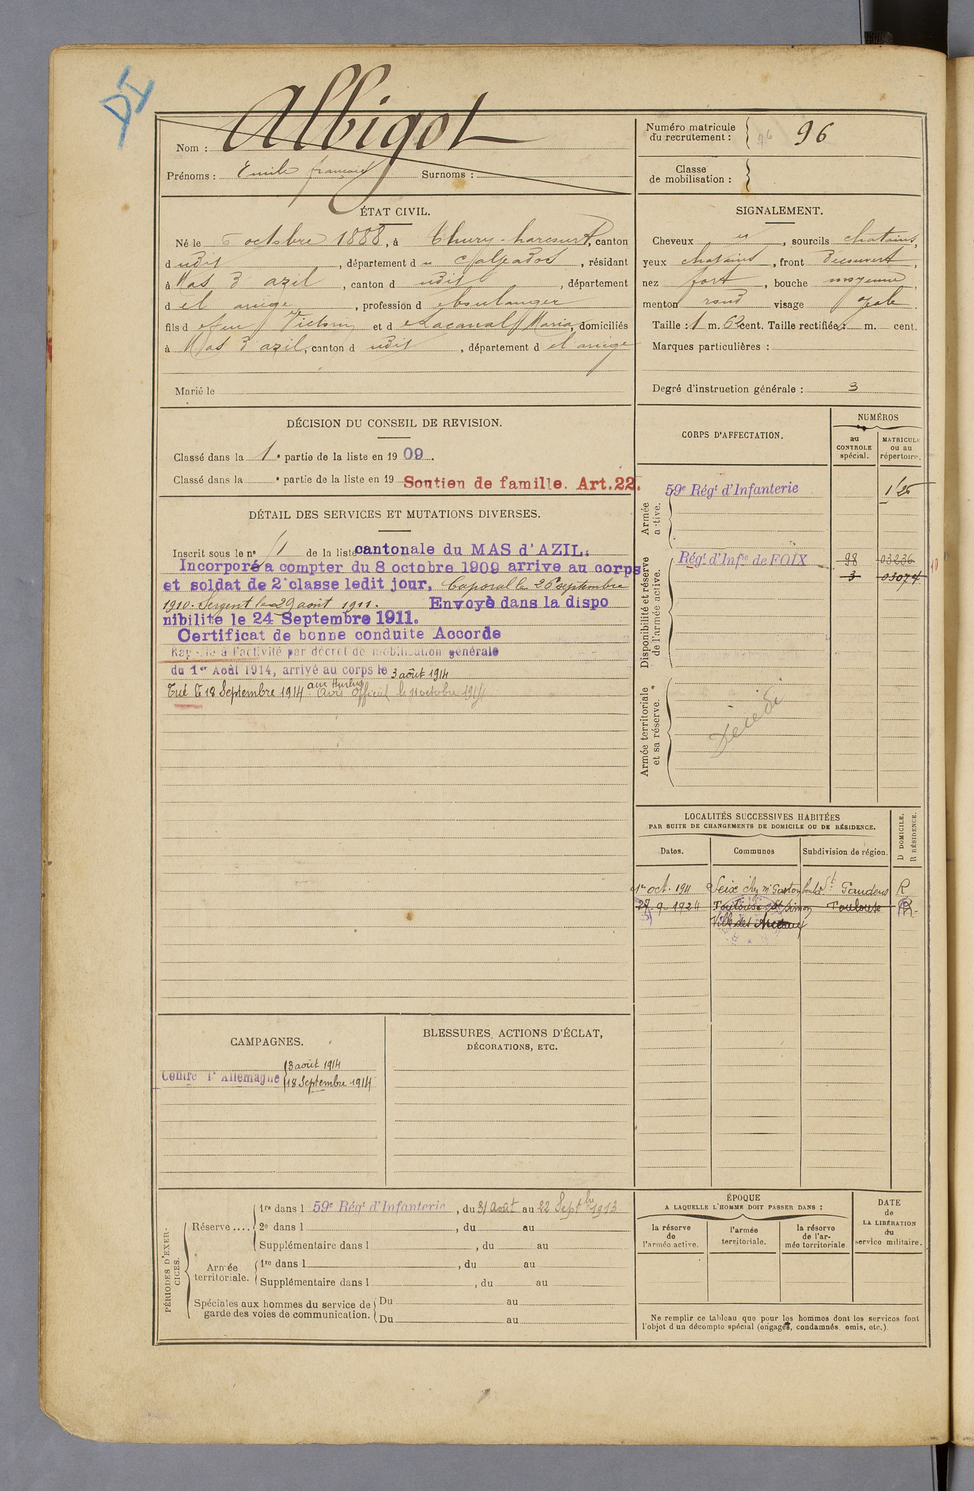 DI
Nom : Albigot
Prénoms : Emile françois Surnoms :
Numéro matricule
du recrutement : 96 96
Classe
de mobilisation :
ÉTAT CIVIL.
Né le 6 octobre 1888, à Thury-harcourt, canton
dudit, département du Calvados, résidant
à Mas d'azil, canton dudit, département
d el ariège, profession d boulanger
fils d feu Victor et d Lacanal Maria, domiciliés
à Mas d'azil, canton dudit, département d el ariège
Marié le
SIGNALEMENT.
Cheveux , sourcils chatains,
yeux chatains, front découvert,
nez fort, bouche moyenne,
menton rond visage ovale
Taille : 1 m. 62 cent. Taille rectifiée : m. cent.
Marques particulières :
Degré d'instruction générale : 3
DÉCISION DU CONSEIL DE REVISION.
Classé dans la 1e partie de la liste en 1909.
Classé dans la e partie de la liste en 19 Soutien de famille. Art.22.
DÉTAIL DES SERVICES ET MUTATIONS DIVERSES.
Inscrit sous le n° 11 de la liste cantonale du MAS d'AZIL.
Incorporé a compter du 8 octobre 1909 arrive au corps
et soldat de 2e classe ledit jour, Caporal le 26 septembre
1910. Sergent le 29 août 1911. Envoyé dans la dispo
nibilité le 24 Septembre 1911.
Certificat de bonne conduite Accorde
Rappelé à l'activité par décret de mobilisation générale
du 1er Août 1914, arrivé au corps le 3 août 1914
Tué le 18 Septembre 1914 aux Hurlus Avis Officiel le octobre 1914
CORPS D'AFFECTATION.
NUMÉROS
au
CONTROLE
spécial.
MATRICULE
ou au
répertoire.
Armée
active.
59e Régt d'Infanterie
Disponibilité et réserve
de l'armée active.
Régt d'Infie de FOIX 98 03236
3 03074
Armée territoriale
et sa réserve.
Décédé
LOCALITÉS SUCCESSIVES HABITÉES
PAR SUITE DE CHANGEMENTS DE DOMICILE OU DE RÉSIDENCE.
Dates.
Communes
Subdivision de région.
D DOMICILE.
R RÉSIDENCE.
1er oct. 1911 Seix chez Mr St Gaudens R
9. 192 Toulouse Toulouse R
CAMPAGNES.
Contre l'Allemagne
3 août 1914
18 Septembre 1914
BLESSURES, ACTIONS D'ÉCLAT,
DÉCORATIONS, ETC.
PÉRIODES D'EXERCICES.
Réserve....
1re dans l 59e Régt d'Infanterie, du 31 août au 22 Septbre 1913
2e dans l , du au
Supplémentaire dans l , du au
Armée
territoriale.
1re dans l , du au
Supplémentaire dans l , du au
Spéciales aux hommes du service de
garde des voies de communication.
Du au
Du au
ÉPOQUE
A LAQUELLE L'HOMME DOIT PASSER DANS :
la réserve
de
l'armée active.
l'armée
territoriale.
la réserve
de l'ar-
mée territoriale
DATE
de
LA LIBÉRATION
du
service militaire.
Ne remplir ce tableau que pour les hommes dont les services font
l'objet d'un décompte spécial (engagés, condamnés, omis, etc.).